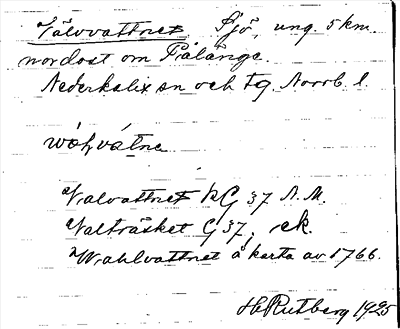 Välvvattnet. Sjö, ung. 5 km.
nordost om Pålänge.
Nederkalix sn och tg. Norrb. l.
Valvattnet KG 37 A.M.
Valträsket G 37, ek.
Wahlvattnet å karta av 1766.
H. Rutberg 1925